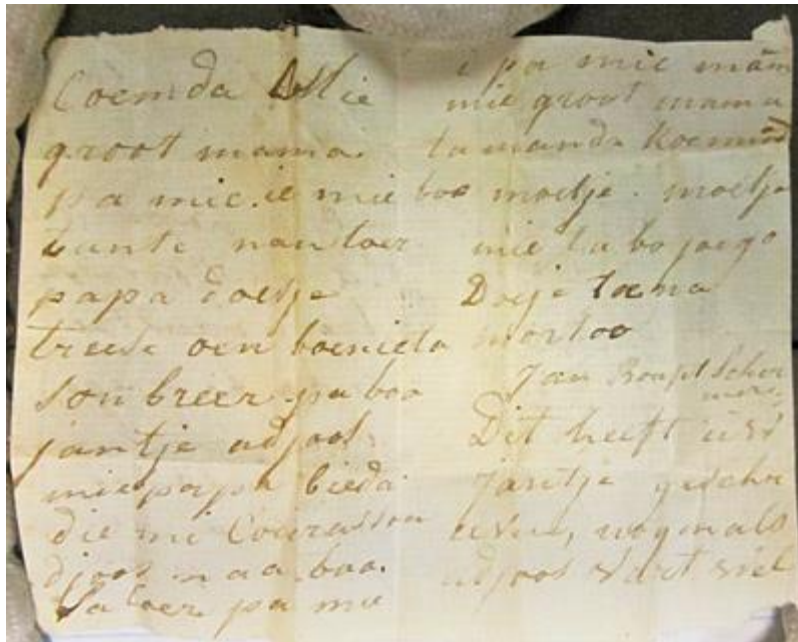 Coemda Mie
groot mama
pa mie. ie mie boo
tante nan toer
papa doesje
treese oen boenieta
sonbreer pa boo
jantje adjoos
mie papa bieda
die mi Courasson
djoos naa boo.
Sa toer pa me
i pa mie mam
mie groot mama
ta manda Koemind
moetje. moetje
mie ta bo joego
Doeje toena
mortoo
Jan Boufet Schr
Dit heeft uw
jantje geschr
even, nogmals
adjoos vart wel